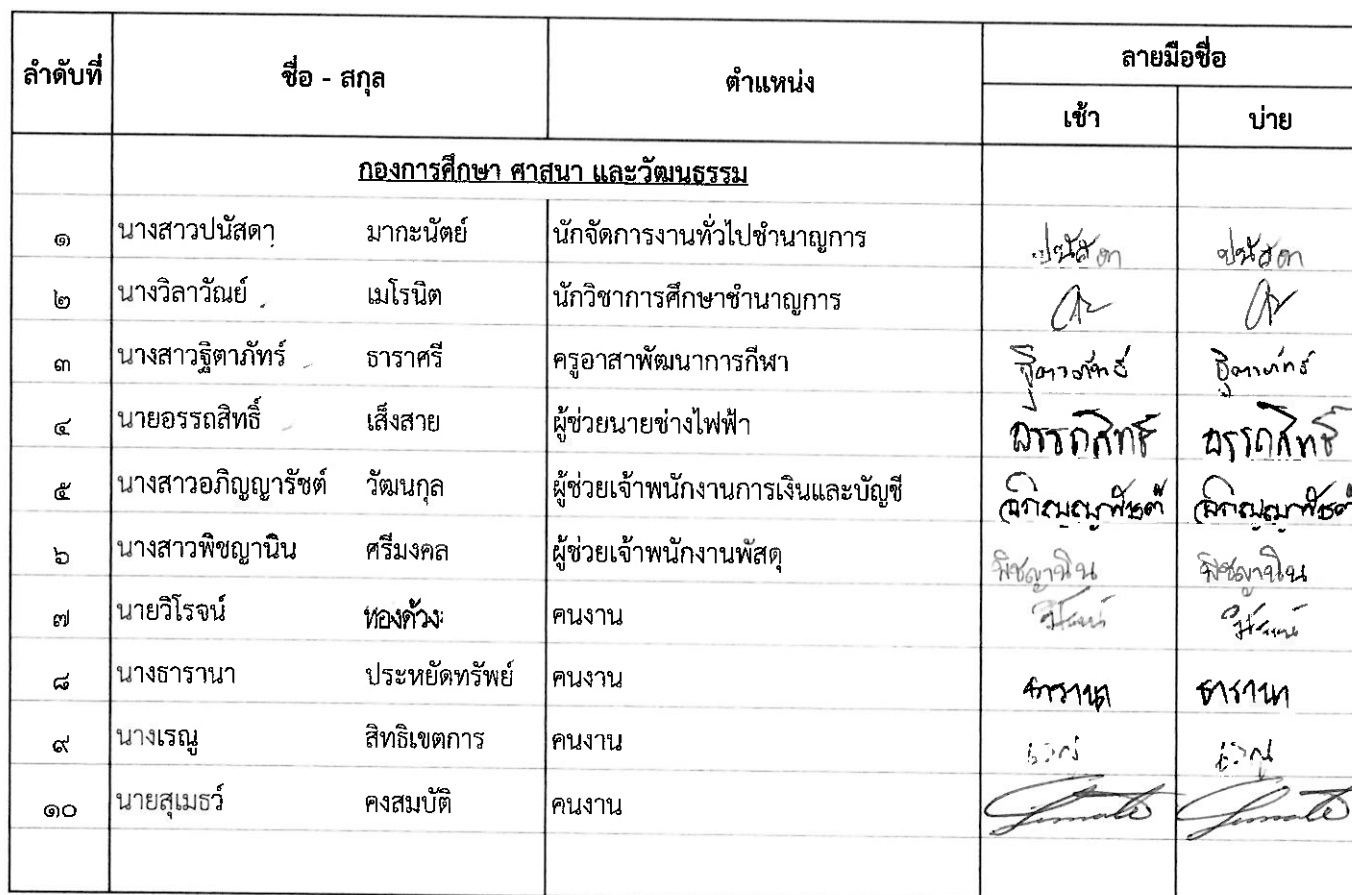 ลำดับที่ ชื่อ - สกุล ตำแหน่ง ลายมือชื่อ
เช้า บ่าย
กองการศึกษา ศาสนา และวัฒนธรรม
๑ นางสาวปนัสดา มากะนัตย์ นักจัดการงานทั่วไปชำนาญการ ปนัสดา ปนัสดา
๒ นางวิลาวัณย์ เมโรนิต นักวิชาการศึกษาชำนาญการ
๓ นางสาวฐิตาภัทร์ ธาราศรี ครูอาสาพัฒนาการกีฬา ฐิตาภัทร์ ฐิตาภัทร์
๔ นายอรรถสิทธิ์ เส็งสาย ผู้ช่วยนายช่างไฟฟ้า อรรถสิทธิ์ อรรถสิทธิ์
๕ นางสาวอภิญญารัชต์ วัฒนกุล ผู้ช่วยเจ้าพนักงานการเงินและบัญชี อภิญญารัชต์ อภิญญารัชต์
๖ นางสาวพิชญานิน ศรีมงคล ผู้ช่วยเจ้าพนักงานพัสดุ พิชญานิน พิชญานิน
๗ นายวิโรจน์ ทองด้วง คนงาน วิโรจน์ วิโรจน์
๘ นางธารานา ประหยัดทรัพย์ คนงาน ธารานา ธารานา
๙ นางเรณู สิทธิเขตการ คนงาน เรณู เรณู
๑๐ นายสุเมธว์ คงสมบัติ คนงาน